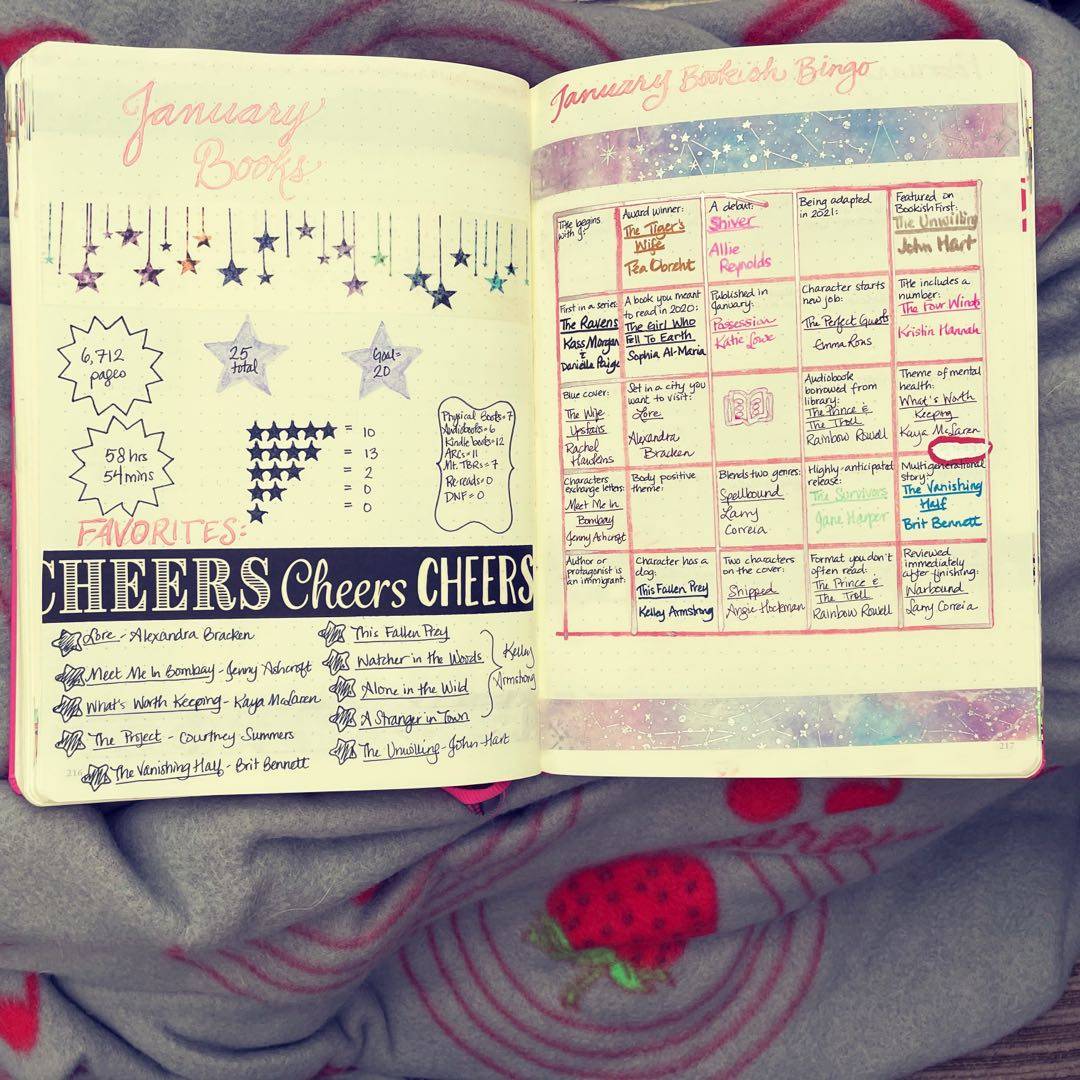 January
Books
6,712
pages
25
total
Goal=
20
58 hrs
54 mins
= 10
= 13
= 2
= 0
= 0
Physical Books=7
Audiobooks=6
Kindle books=12
ARCs=11
Mt. TBRs=7
Re-reads=0
DNF=0
FAVORITES:
CHEERS Cheers CHEERS
Lore - Alexandra Bracken
Meet Me In Bombay - Jenny Ashcroft
What's Worth Keeping - Kaya McLaren
The Project - Courtney Summers
The Vanishing Half - Brit Bennett
This Fallen Prey
Watcher in the Woods
Alone in the Wild
A Stranger in Town
Kelley
Armstrong
The Unwilling - John Hart
216
January Bookish Bingo
Title begins
with
Award winner:
The Tiger's
Wife
Téa Obreht
A debut:
Shiver
Allie
Reynolds
Being adapted
in 2021:
Featured on
BookishFirst:
The Unwilling
John Hart
First in a series:
The Ravens
Kass Morgan
&
Danielle Paige
A book you meant
to read in 2020:
The Girl Who
Fell To Earth
Sophia Al-Maria
Published in
January:
Possession
Katie Lowe
Character starts
new job:
The Perfect Guests
Emma Rous
Title includes a
number:
The Four Winds
Kristin Hannah
Blue cover:
The Wife
Upstairs
Rachel
Hawkins
Set in a city you
want to visit:
Lore
Alexandra
Bracken
Audiobook
borrowed from
library:
The Prince &
The Troll
Rainbow Rowell
Theme of mental
health:
What's Worth
Keeping
Kaya McLaren
Characters
exchange letters:
Meet Me In
Bombay
Jenny Ashcroft
Body positive
theme:
Blends two genres:
Spellbound
Larry
Correia
Highly-anticipated
release:
The Survivors
Jane Harper
Multigenerational
story:
The Vanishing
Half
Brit Bennett
Author or
protagonist is
an immigrant:
Character has a
dog:
This Fallen Prey
Kelley Armstrong
Two characters
on the cover:
Shipped
Angie Hockman
Format you don't
often read:
The Prince &
The Troll
Rainbow Rowell
Reviewed
immediately
after finishing:
Warbound
Larry Correia
217